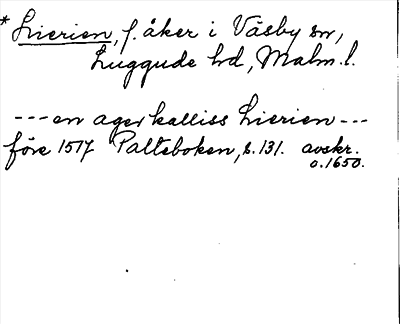 * Lierien, f. åker i Väsby sn,
Luggude hd, Malm. l.
--- en ager kalliss Lierien ---
före 1517 Palteboken, s. 131. avskr.
o. 1650.